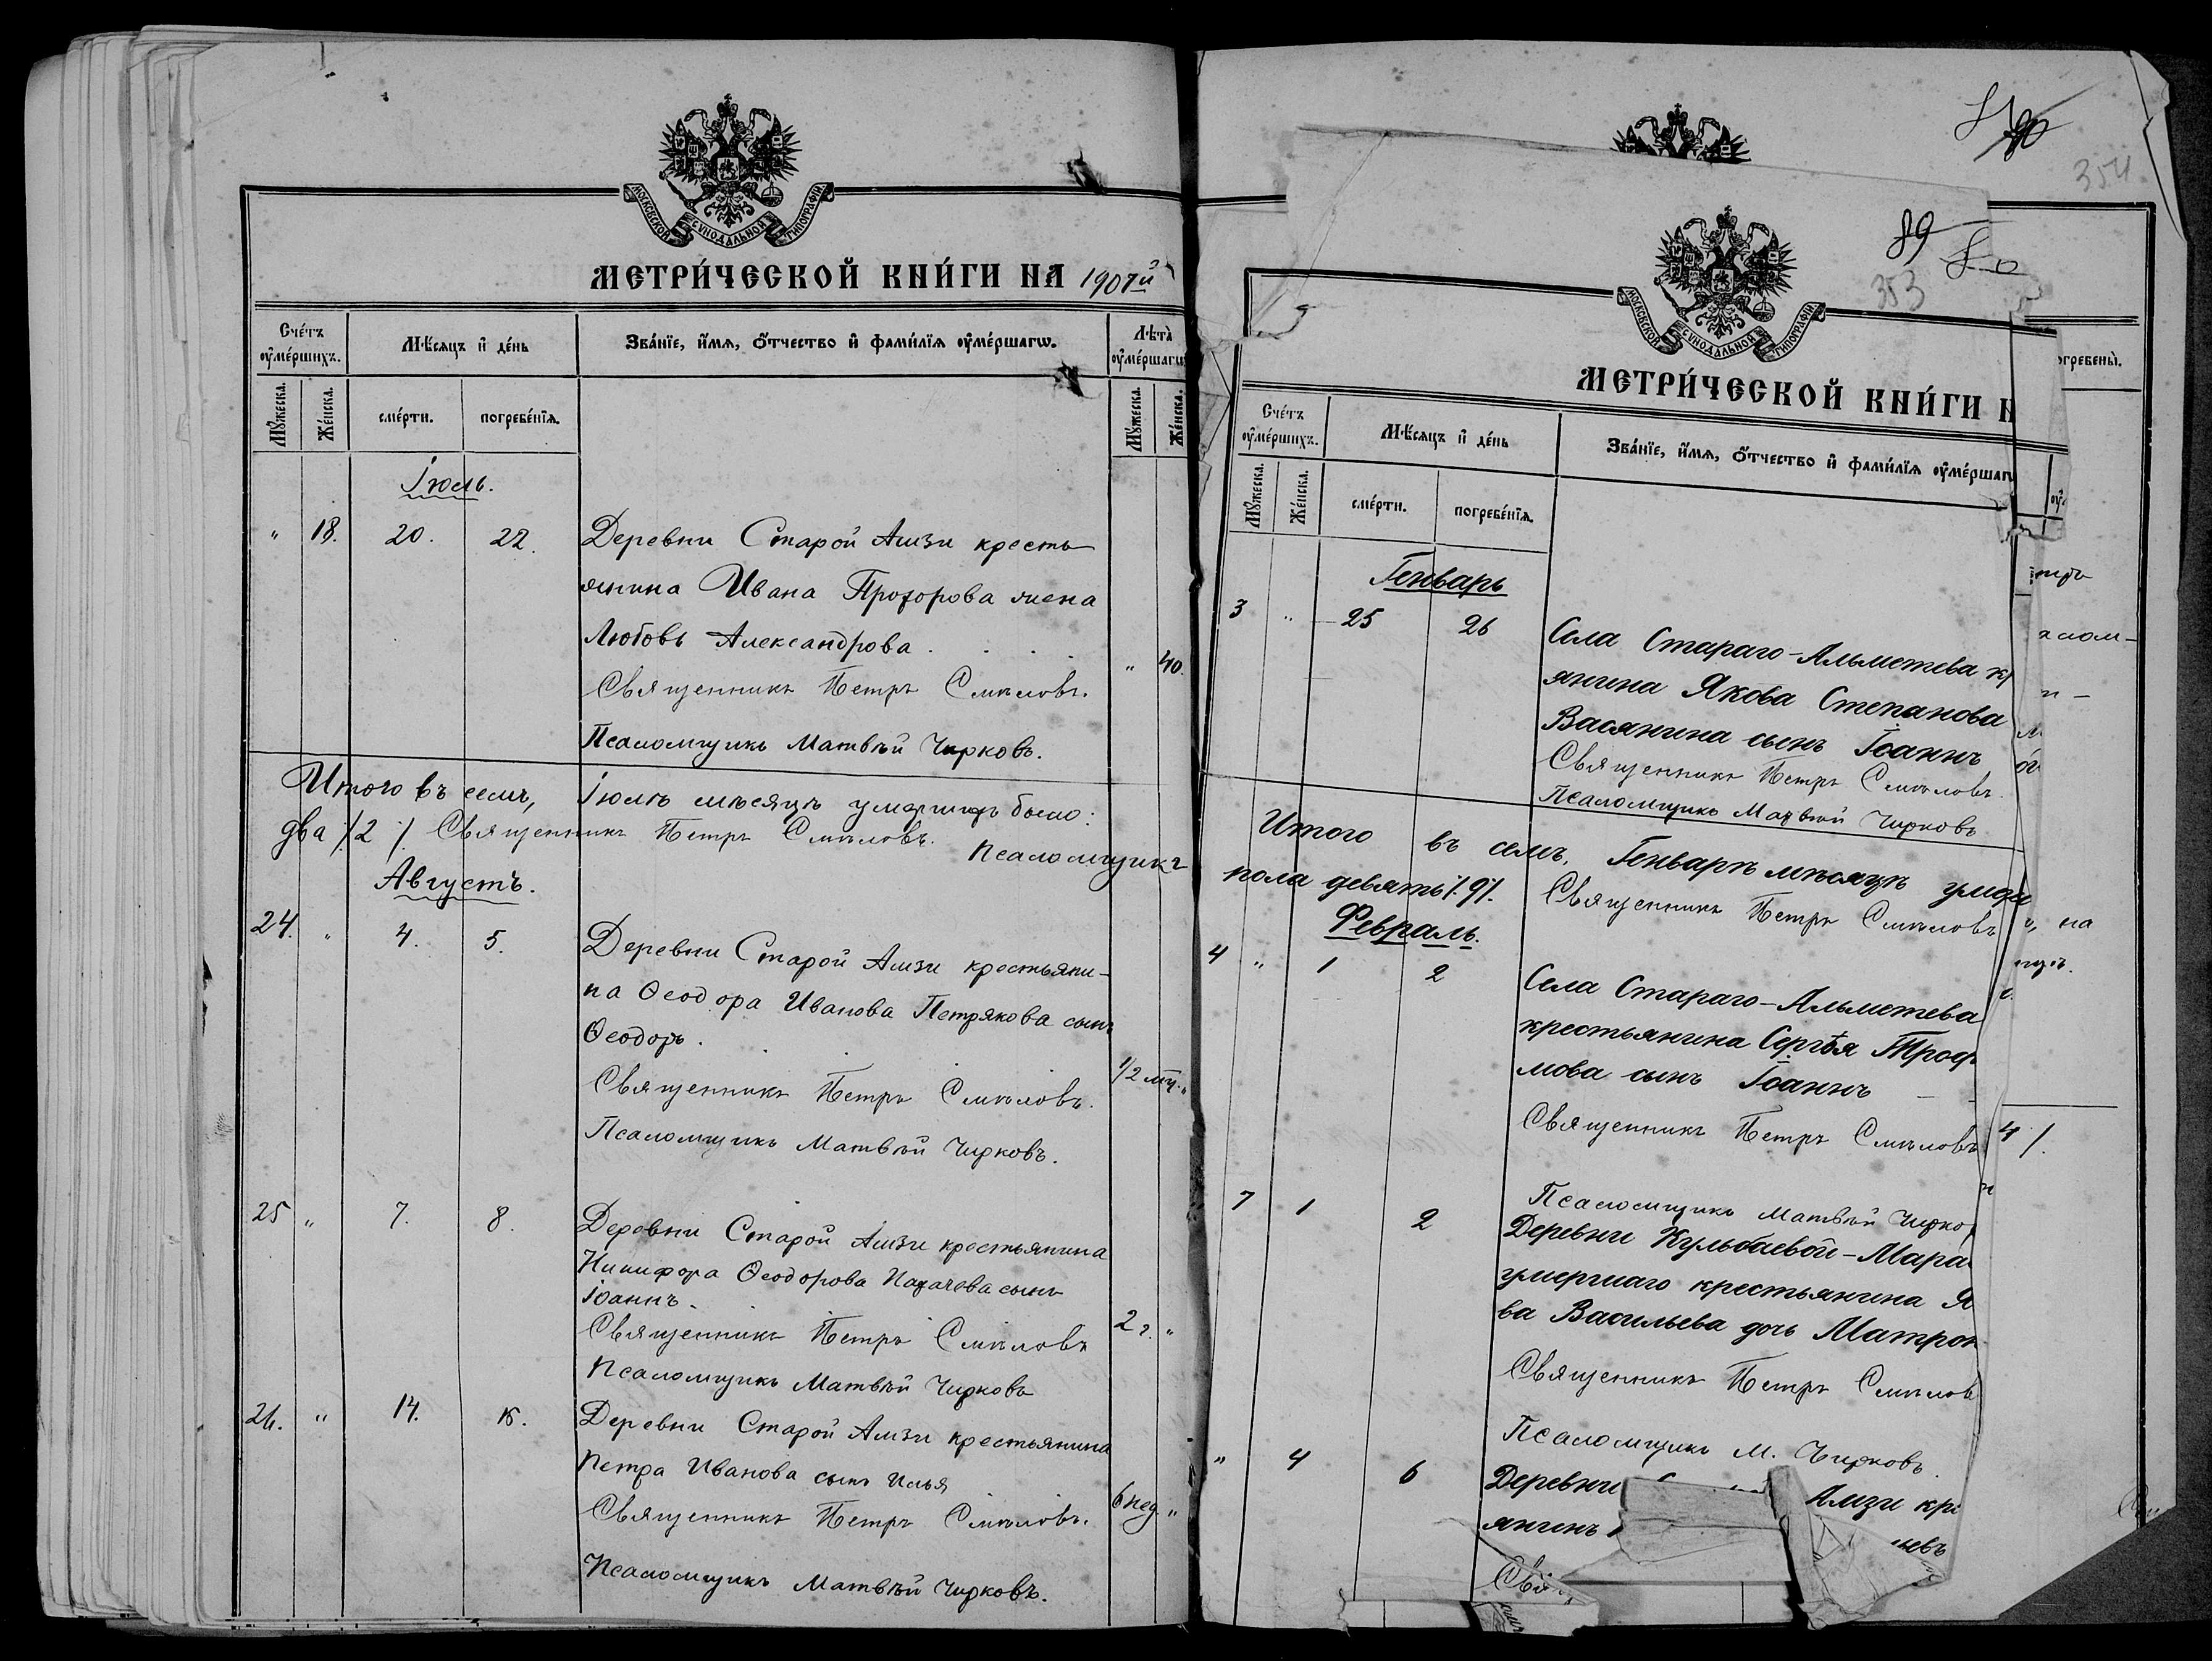 МОСКОВСКОЙ СѴНОДАЛЬНОЙ ТИПОГРАФІИ
МЕТРИ́ЧЕСКОЙ КНИ́ГИ НА 1907й
Сче́тъ оуме́ршихъ.
Мѣ́сяцъ и де́нь
Зва́нїе, и́мя, о́тчество и фами́лїя оуме́ршагѡ.
Лѣ́та оуме́ршагѡ
Му́жеска.
Же́нска.
сме́рти.
погребе́нїя.
Му́жеска.
Же́нска.
Іюль.
" 18. 20. 22. Деревни Старой Амзи кресть
янина Ивана Прохорова жена
Любовь Александрова . . . . " 40.
Священникъ Петръ Смѣловъ.
Псаломщикъ Матвѣй Чирковъ.
Итого въ семъ, Іюлѣ мѣсяцѣ умершихъ было:
два /2/. Священникъ Петръ Смѣловъ. Псаломщикъ
Августъ.
24. " 4. 5. Деревни Старой Амзи крестьяни-
на Ѳеодора Иванова Петрякова сынъ
Ѳеодоръ . . . 1/2 мц. "
Священникъ Петръ Смѣловъ.
Псаломщикъ Матвѣй Чирковъ.
25 " 7. 8. Деревни Старой Амзи крестьянина
Никифора Ѳеодорова сынъ
Іоаннъ. 2 г. "
Священникъ Петръ Смѣловъ
Псаломщикъ Матвѣй Чирковъ
26. " 14. 15. Деревни Старой Амзи крестьянина
Петра Иванова сынъ Илья 6 нед. "
Священникъ Петръ Смѣловъ.
Псаломщикъ Матвѣй Чирковъ.
354
89
80
353
МОСКОВСКОЙ СѴНОДАЛЬНОЙ ТИПОГРАФІИ
МЕТРИ́ЧЕСКОЙ КНИ́ГИ Н
огребены̀.
Сче́тъ оуме́ршихъ.
Мѣ́сяцъ и де́нь
Зва́нїе, и́мя, о́тчество и фами́лїя оуме́ршаг
Му́жеска.
Же́нска.
сме́рти.
погребе́нїя.
Генварь
3 " 25 26 Села Стараго-Альметева кр
янина Якова Степанова
Васянина сынъ Іоаннъ
Священникъ Петръ Смѣловъ.
Псаломщикъ Матвѣй Чирковъ
Итого въ семъ, Генварѣ мѣсяцѣ умер
пола девять /.9/.
Священникъ Петръ Смѣловъ
Февраль.
4 " 1 2 Села Стараго-Альметева
крестьянина Сергѣя Троф
мова сынъ Іоаннъ
Священникъ Петръ Смѣловъ
Псаломщикъ Матвѣй Чирко
7 1 2 Деревни Кульбаевой-Мара
умершаго крестьянина Я
ва Васильева дочь Матрон
Священникъ Петръ Смѣлов
Псаломщикъ М. Чирковъ.
" 4 6 Деревни Амзи кре
янинъ ьевъ
Свящ
алом-
на
4 /.